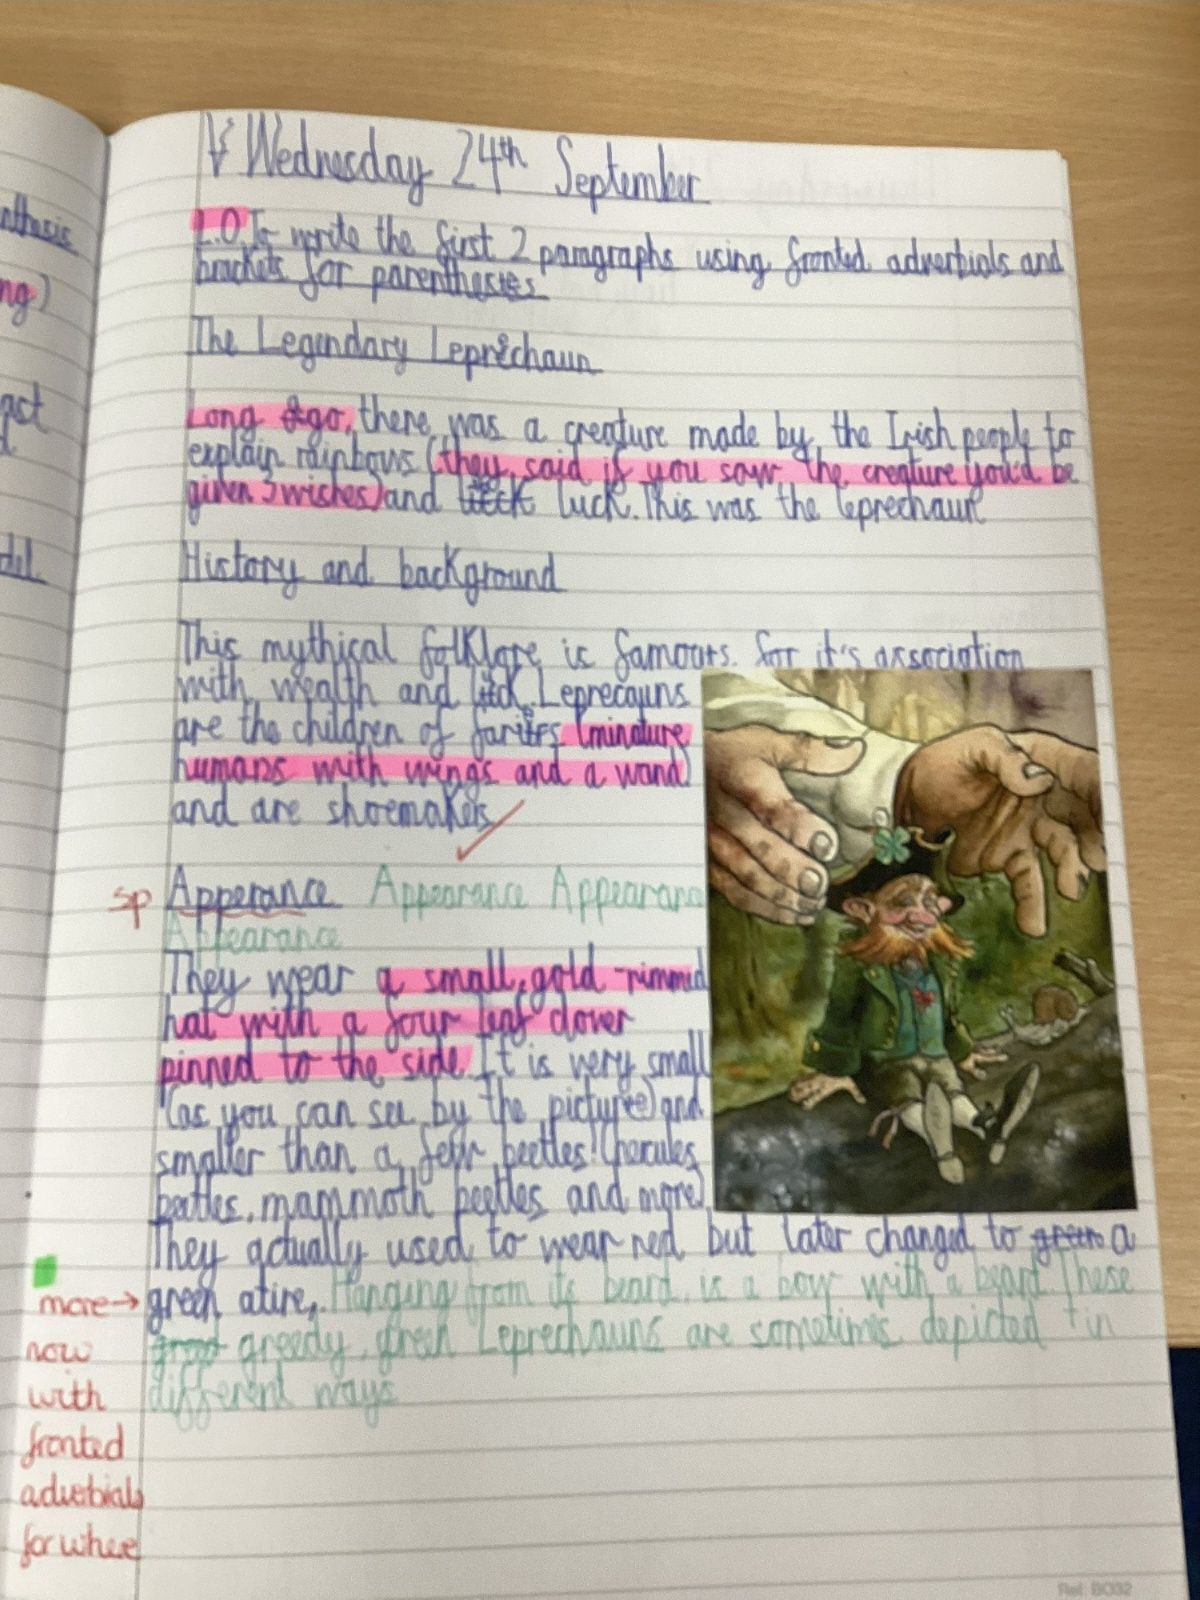 Wednesday 24th September
L.O. To write the first 2 paragraphs using fronted adverbials and
brackets for parentheses
The Legendary Leprechaun
Long ago, there was a creature made by the Irish people to
explain rainbows (they said if you saw the creature you'd be
given 3 wishes) and luck. This was the leprechaun
History and background
This mythical folklore is famours. for it's association
with wealth and luck. Leprecauns
are the children of faries (minature
humans with wings and a wand)
and are shoemakers
sp Apperance Appearance Appearance
Appearance
They wear a small, gold-rimmed
hat with a four leaf clover
pinned to the side. It is very small
(as you can see by the picture) and
smaller than a few beetles! (hercules
beatles, mammoth beetles and more)
They actually used to wear red but later changed to green a
green atire,. Hanging from its beard, is a bow with a beard. These
greedy, green Leprechauns are sometimes depicted in
different ways
more→
now
with
fronted
adverbials
for where
nthesis
ng)
act
del.
Ref: BO32